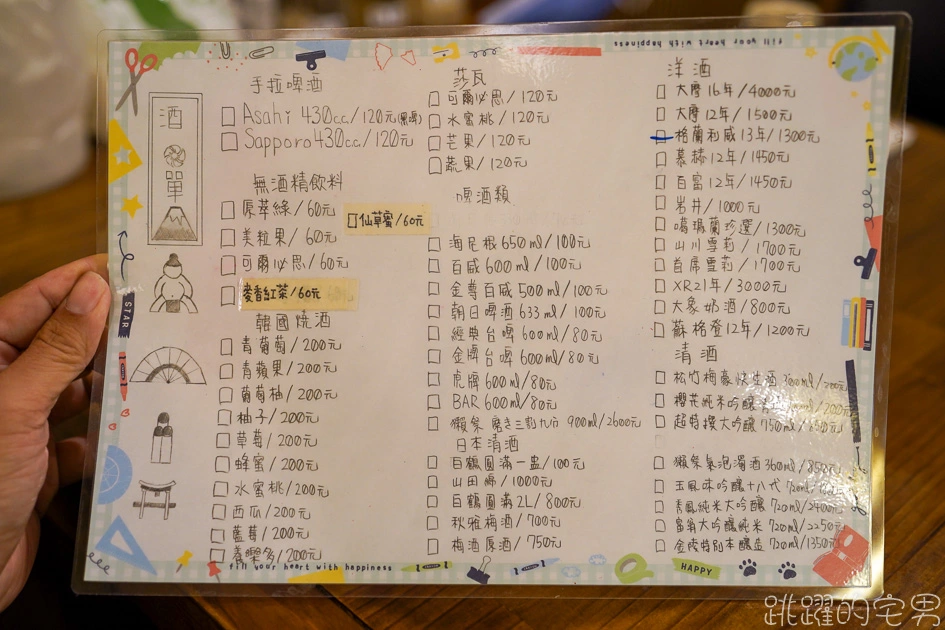 fill your heart with happiness
酒單
手拉啤酒
Asahi 430c.c./120元(黑啤)
Sapporo 430c.c./120元
無酒精飲料
原萃綠/60元
仙草蜜/60元
美粒果/60元
可爾必思/60元
麥香紅茶/60元
韓國燒酒
青葡萄/200元
青蘋果/200元
葡萄柚/200元
柚子/200元
草莓/200元
蜂蜜/200元
水蜜桃/200元
西瓜/200元
藍莓/200元
養樂多/200元
莎瓦
可爾必思/120元
水蜜桃/120元
芒果/120元
蔬果/120元
啤酒類
海尼根 650ml/100元
百威 600ml/100元
金尊百威 500ml/100元
朝日啤酒 633ml/100元
經典台啤 600ml/80元
金牌台啤 600ml/80元
虎牌 600ml/80元
BAR 600ml/80元
獺祭 磨き三割九分 900ml/2600元
日本清酒
白鶴圓滿一盅/100元
山田錦/1000元
白鶴圓滿2L/800元
秋雅梅酒/700元
梅酒原酒/750元
洋酒
大摩16年/4000元
大摩12年/1500元
格蘭利威13年/1300元
慕赫12年/1450元
百富12年/1450元
岩井/1000元
噶瑪蘭珍選/1300元
山川雪莉/1700元
首席雪莉/1700元
XR21年/3000元
大象奶酒/800元
蘇格登12年/1200元
清酒
松竹梅豪快清酒 300ml/200元
櫻花純米吟釀
超特撰大吟釀 750ml/
獺祭氣泡濁酒 360ml/850元
玉風味吟釀十八代 720ml/
720ml/2400元
富翁大吟釀純米 720ml/2250元
金陵特別本釀造 720ml/1350元
STAR
fill your heart with happiness
HAPPY
跳躍的宅男